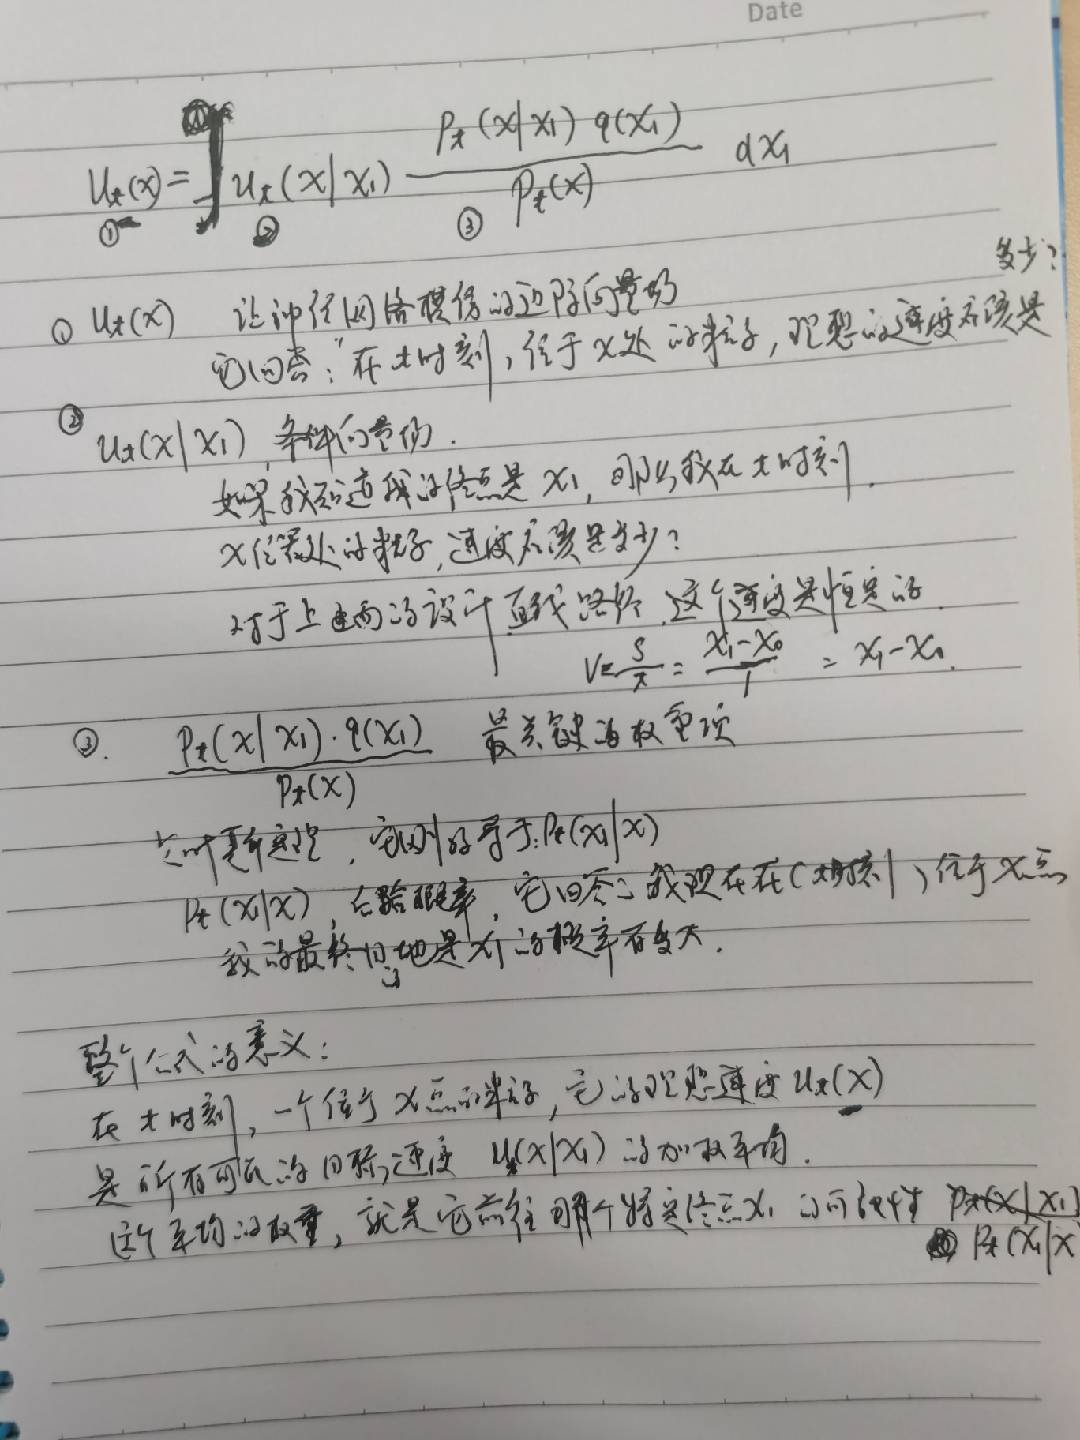 Date
u_t(x) = ∫ u_t(x|x₁) \frac{p_t(x|x₁) q(x₁)}{p_t(x)} dx₁
① ② ③
① u_t(x) 让神经网络模仿的边际向量场
它回答:"在t时刻,位于x处的粒子,理想的速度应该是多少?
② u_t(x|x₁) 条件向量场.
如果我知道我的终点是x₁,那么我在t时刻.
x位置处的粒子,速度应该是多少?
对于上面的设计直线路径,这个速度是恒定的.
V = \frac{s}{t} = \frac{x₁-x₀}{1} = x₁-x₀.
③. \frac{p_t(x|x₁)·q(x₁)}{p_t(x)} 最关键的权重项
叶斯定理,它刚好等于:p_t(x₁|x)
p_t(x₁|x),后验概率,它回答了我现在在(t时刻)位于x点
我的最终目的地是x₁的概率有多大.
整个公式的意义:
在t时刻,一个位于x点的粒子,它的理想速度u_t(x)
是所有可能的目标速度 u_t(x|x₁)的加权平均.
这个平均的权重,就是它前往那个特定终点x₁的可能性
p_t(x₁|x